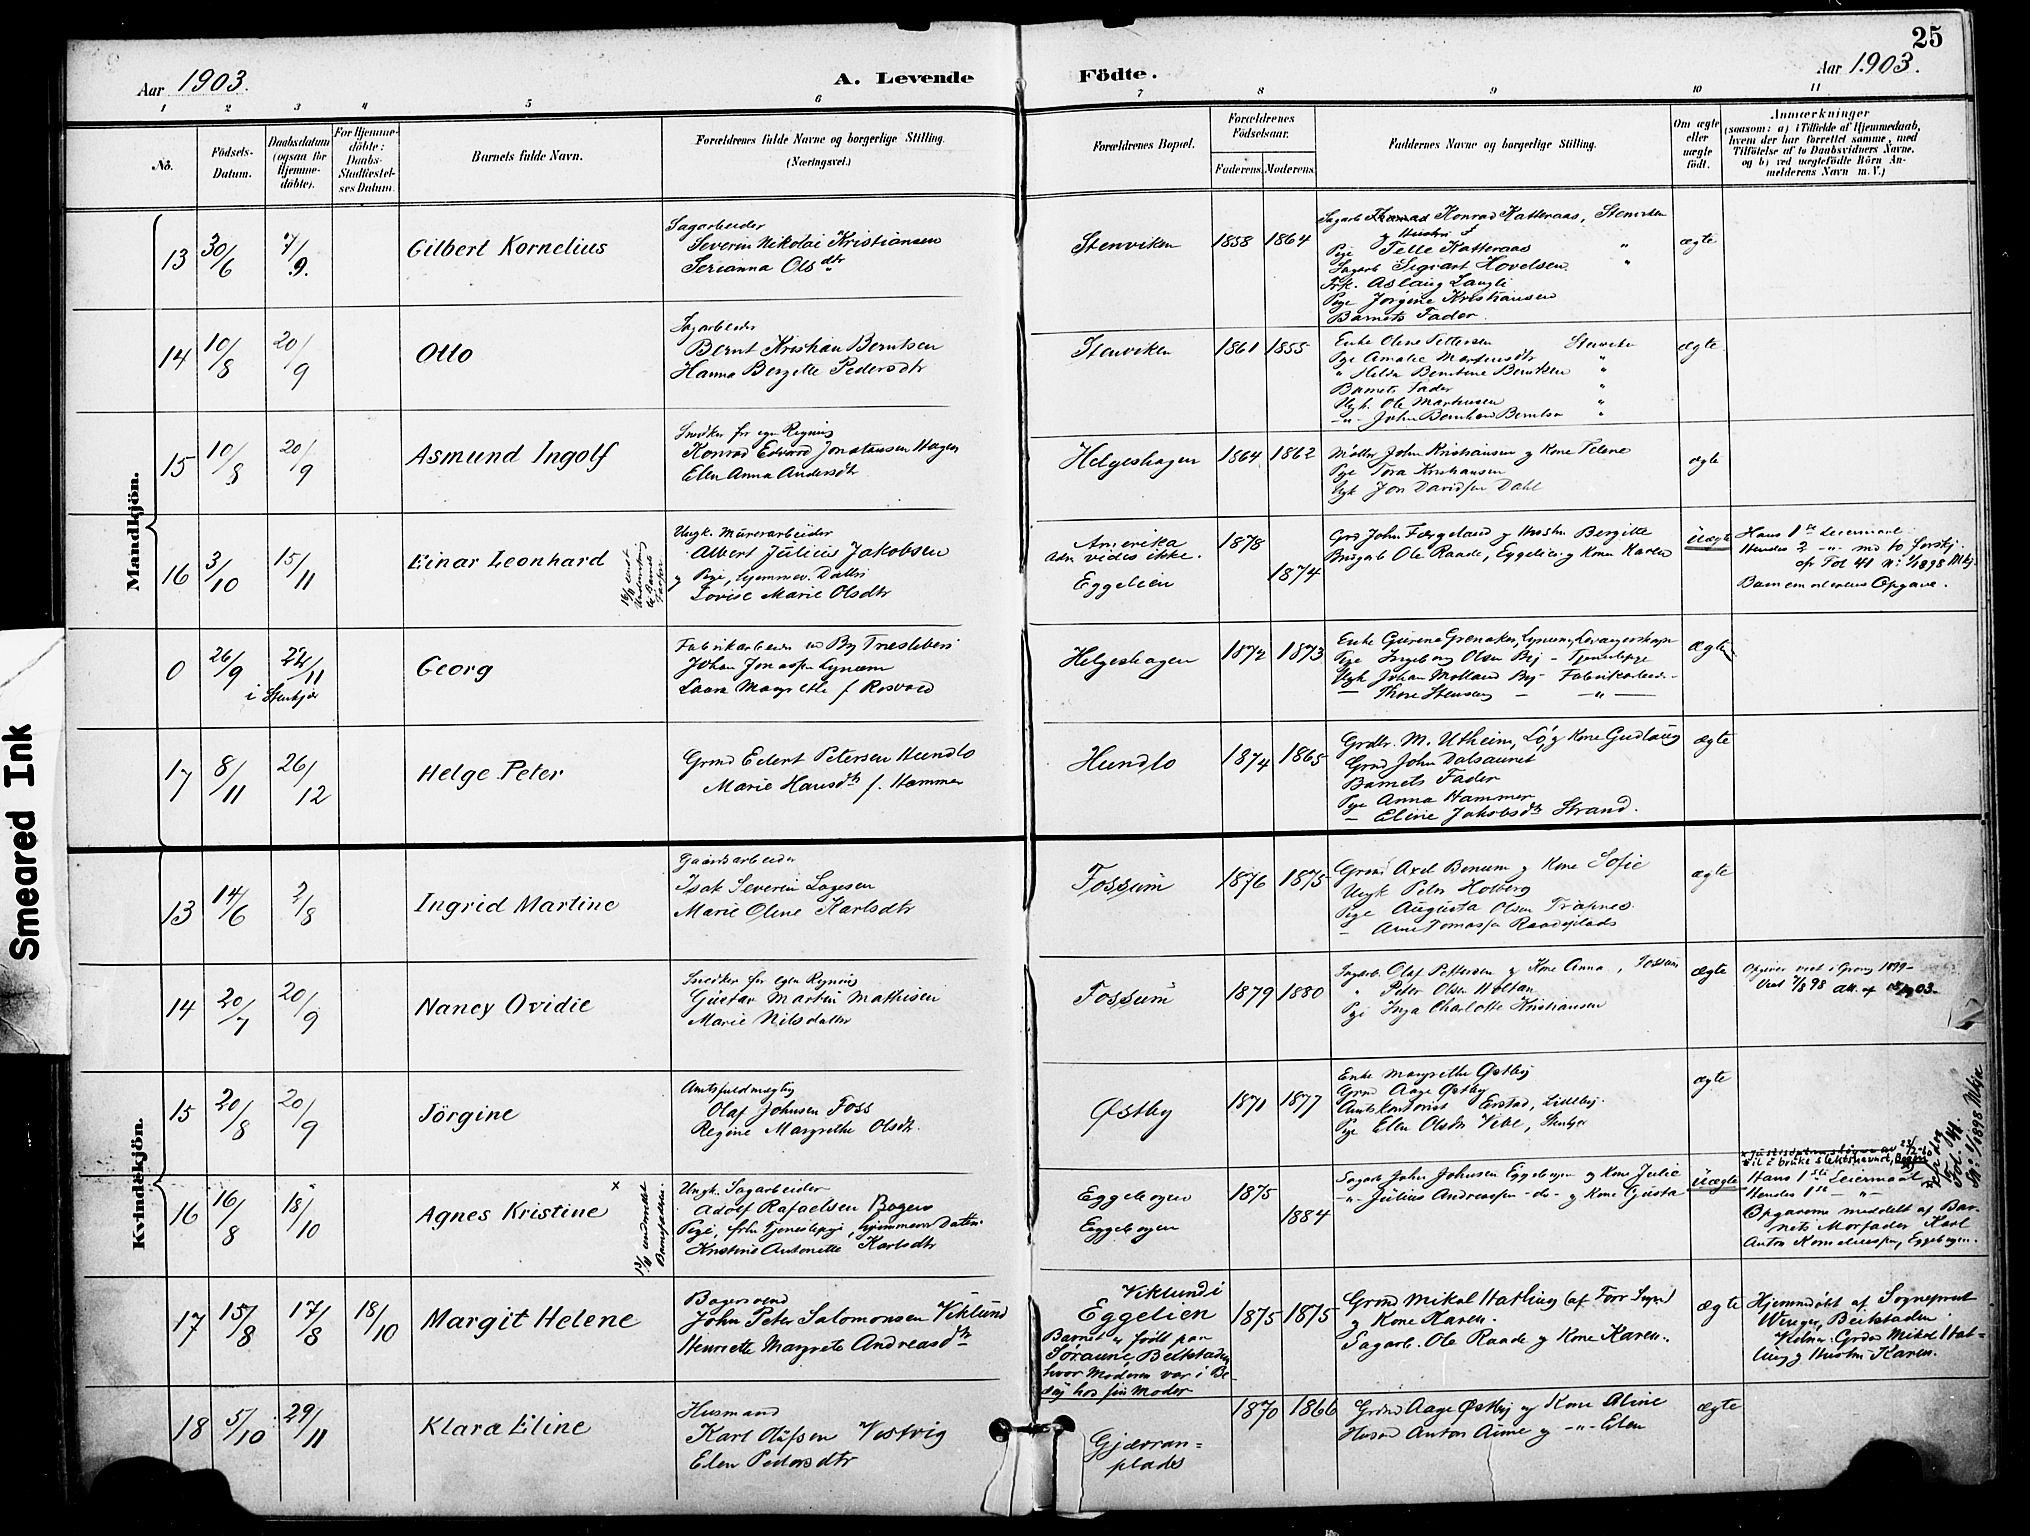 25
Aar 1903.
A. Levende
Födte.
Aar 1903.
1 2 3 4 5 6 7 8 9 10 11
No.
Födsels-
Datum.
Daabsdatum
(ogsaa for
Hjemme-
döbte).
For Hjemme-
döbte:
Daabs-
Stadfæstel-
ses Datum.
Barnets fulde Navn.
Forældrenes fulde Navne og borgerlige Stilling.
(Næringsvei.)
Forældrenes Bopæl.
Forældrenes
Födselsaar.
Faderens. Moderens.
Faddernes Navne og borgerlige Stilling.
Om ægte
eller
uægte
födt.
Anmærkninger
(saasom: a) i Tilfælde af Hjemmedaab,
hvem der har forrettet samme, med
Tilföielse af to Daabsvidners Navne,
og b) ved uægtefödte Börn An-
melderens Navn m. V.)
Mandkjön.
13 30/6 7/9. Gilbert Kornelius
Sagarbeider
Severin Nikolai Kristiansen
Serianna Olsdtr
Stenviken 1858 1864
Sagarb Konrad Katteraas, Stenviken
Pige Telle Katteraas "
Sagarb Sigvart Hovelsen "
Frk. Aslaug Langli
Pige Jørgine Kristiansen
Barnets Fader.
ægte
14 10/8 20/9 Otto
Sagarbeider
Bernt Kristian Berntsen
Hanna Bergitte Pedersdtr
Stenviken 1861 1855
Enke Oline Pettersen Stenviken
Pige Amalie Martinusdtr "
" Hilda Berntine Berntsen "
Barnets Fader "
Ungk. Ole Martinusen "
-"- John Bernhard Berntsen "
ægte
15 10/8 20/9 Asmund Ingolf
Snedker for egen Regning
Konrad Edvard Jonatansen Hagen
Elen Anna Andersdtr
Helgeshagen 1864 1862
Møller John Kristiansen og Kone Teline
Pige Tora Kristiansen
Ungk Jon Davidsen Dahl
ægte
16 3/10 15/11 Einar Leonhard
Ungk. Murerarbeider
Albert Julius Jakobsen
og Pige, hjemmev. Datter
Lovise Marie Olsdtr
Amerika
adr. vides ikke.
Eggelien
1878
1874
Grd John Færgeland og Hustru Bergitte
Brugarb Ole Raade, Eggelien og Kone Karen
Uægte
Hans 1ste Leiermaal
Hendes 2 -"- med to forskj.
cfr Fol 41 No 1/1898 Mkj
Barnemoderens Opgave.
0 26/9 22/11 Georg
i Stenkjær
Johan Jonassen Lynum
Laura Margrethe f. Rosvold
Helgeshagen 1872 1873
Enke Gurina Grønaker, Lynum, Levangerskogn
Pige Ingeborg Olsen Bij - Tjenestepige
Ungk Johan Molland Bij - Fabrikarbeid-
— Thore Stensen — -"-
Ægte
17 8/11 26/12 Helge Peter
Grmd Edert Petersen Hundlo
Marie Hansdtr f. Hammer
Hundlo 1874 1865
Grdbr. M. Utheim, Lø, og Kone Gudlaug
Grmd John Dalsaunet
Barnets Fader
Pige Anna Hammer
— Eline Jakobsdtr Strand.
ægte
Kvindekjön.
13 14/6 2/8 Ingrid Martine
Gaardsarbeider
Isak Severin Lagesen
Marie Oline Karlsdtr
Fossum 1876 1875
Grmd Axel Benum og Kone Sofie
Ungk Peter Holberg
Pige Augusta Olsen Trapnes.
— Arne Tomassen Raadesplads
ægte
14 20/7 20/9 Nancy Ovidie
Snedker for egen Regning
Gustav Martin Mathisen
Marie Nilsdatter
Fossum 1879 1880
Sagarb. Olaf Pettersen og Kone Anna, Fossum
" Peter Olsen Holtan
Pige Inga Charlotte Kristiansen
ægte
15 20/8 20/9 Jörgine
Amtsfuldmægtig
Olaf Johnsen Foss
Regine Margrethe Olsdtr.
Østby 1871 1877
Enke Margrethe Østby
Grmd Aage Østby
Amtskontorist Erstad, Lilleby.
Pige Elen Olsdtr Vibe, Stenkjer
ægte
16 16/8 18/10 Agnes Kristine x
13/8 anmeldt
Barnefader.
Ungk. Sagarbeider
Adolf Rafaelsen Bogen
Pige, fhv Tjenestepige, hjemmev. Datter
Kristine Antonette Karlsdtr
Eggebogen
Eggebogen
1875
1884
Sagarb John Johnsen Eggebogen og Kone Julie
-"- Julius Andreassen -do- og Kone Gusta
Uægte
Hans 1ste Leiermaal
Hendes 1ste -"-
Opgaverne meddelt af Bar-
nets Morfader Karl
Anton Korneliussen, Eggebogen.
17 15/8 17/8 18/10 Margit Helene
Bagersvend
John Peter Salomonsen Viklund
Henriette Margrete Andreasdtr
Viklund i
Eggelien
Barnet er født paa
Søraune, Beitstaden
hvor Moderen var i Be-
søg hos sin Moder
1875 1875
Grmd Mikal Hatling (af For Sogn)
og Kone Karen.
Sagarb. Ole Raade og Kone Karen.
ægte
Hjemmdøbt af Sogneprest
Winger, Beitstaden
Vidner: Grdm Mikal Hat-
ling og Hustru Karen.
18 5/10 29/11 Klara Eline
Husmand
Karl Olufsen Vestvig
Elen Pedersdtr
Gjævran-
plads
1870 1866
Grdmd Aage Østby og Kone Aline
Husmd Anton Aune og -"- Elen
ægte
Smeared Ink